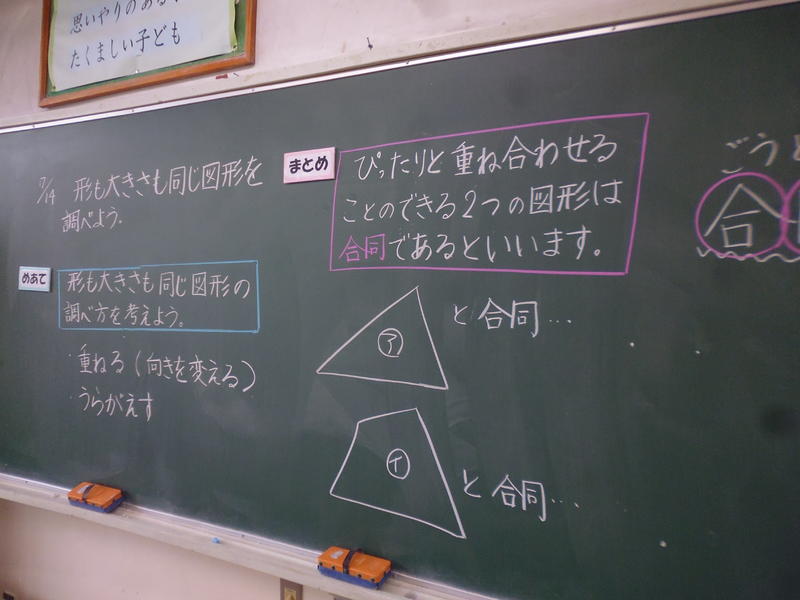 思いやりのある
たくましい子ども
7/14 形も大きさも同じ図形を
調べよう.
めあて
形も大きさも同じ図形の
調べ方を考えよう。
・重ねる(向きを変える)
・うらがえす
まとめ
ぴったりと重ね合わせる
ことのできる2つの図形は
合同であるといいます。
㋐ と合同…
㋑ と合同…
ごうと
合